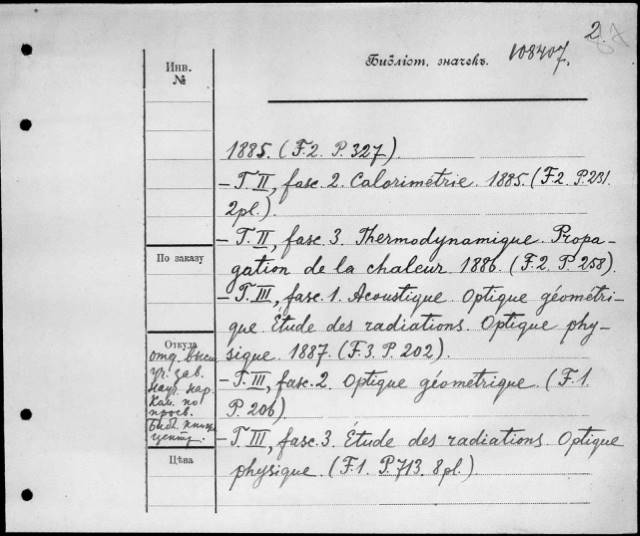 2.
Инв.
№
Библіот. значекъ. 108407.
1885. (F.2. P.327).
– T. II, fasc. 2. Calorimétrie. 1885. (F.2. P.231.
2pl.).
– T. II, fasc. 3. Thermodynamique. Propa-
gation de la chaleur 1886. (F.2. P.258).
По заказу
– T. III, fasc. 1. Acoustique. Optique géométri-
que. Étude des radiations. Optique phy-
sique. 1887. (F.3. P.202).
Откуда
отд. высш
уч. зав.
нар.
ком. по
просв.
центр.
– T. III, fasc. 2. Optique géometrique. (F.1.
P.206).
– T. III, fasc. 3. Étude des radiations. Optique
physique. (F.1. P.713. 8pl.).
Цѣна